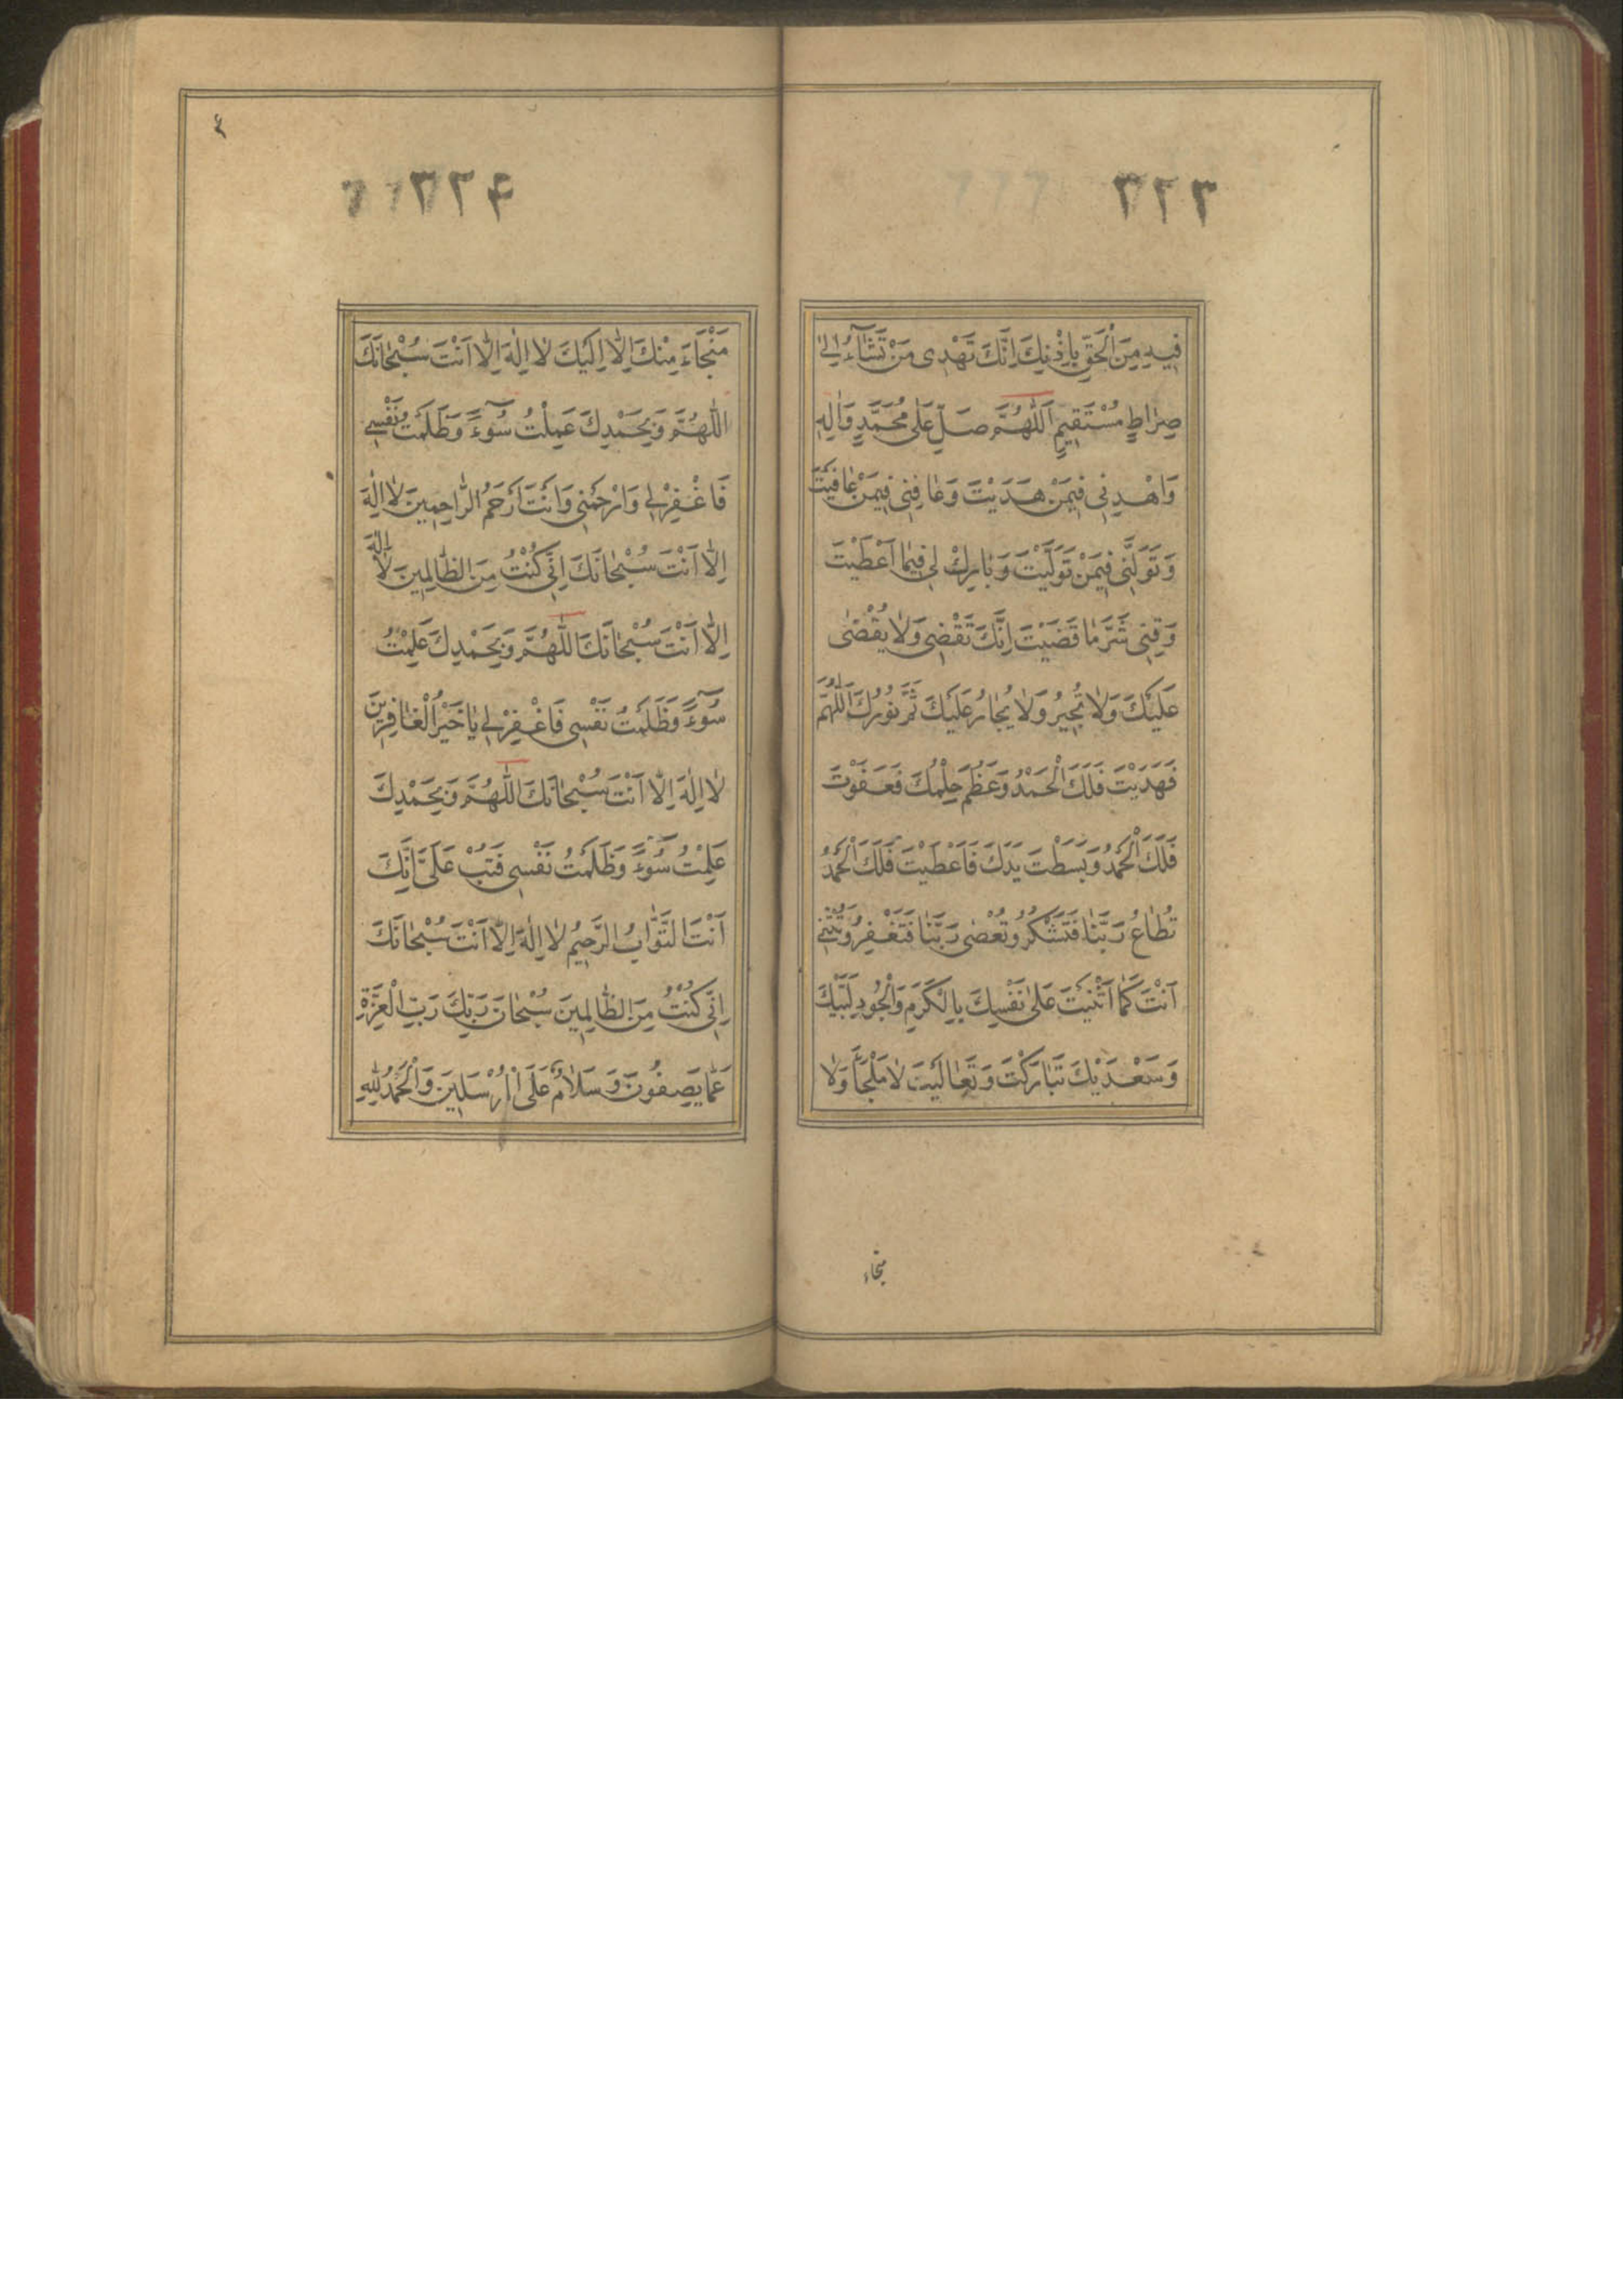 ٣٢٣
فِيهِ مِنَ الْحَقِّ بِاِذْنِكَ اِنَّكَ تَهْدِى مَنْ تَشَآءُ اِلٰى
صِرٰاطٍ مُسْتَقِيمٍ اَللّٰهُمَّ صَلِّ عَلٰى مُحَمَّدٍ وَاٰلِهِ
وَاهْدِنِى فِيمَنْ هَدَيْتَ وَعٰافِنِى فِيمَنْ عٰافَيْتَ
وَتَوَلَّنِى فِيمَنْ تَوَلَّيْتَ وَبٰارِكْ لِى فِيمٰا اَعْطَيْتَ
وَقِنِى شَرَّ مٰا قَضَيْتَ اِنَّكَ تَقْضِى وَلٰا يُقْضٰى
عَلَيْكَ وَلٰا تُجِيرُ وَلٰا يُجٰارُ عَلَيْكَ تَمَّ نُورُكَ اَللّٰهُمَّ
فَهَدَيْتَ فَلَكَ الْحَمْدُ وَعَظُمَ حِلْمُكَ فَعَفَوْتَ
فَلَكَ الْحَمْدُ وَبَسَطْتَ يَدَكَ فَاَعْطَيْتَ فَلَكَ الْحَمْدُ
تُطٰاعُ رَبَّنٰا فَتَشْكُرُ وَتُعْصٰى رَبَّنٰا فَتَغْفِرُ وَتُثْنِى
اَنْتَ كَمٰا اَثْنَيْتَ عَلٰى نَفْسِكَ بِالْكَرَمِ وَالْجُودِ لَبَّيْكَ
وَسَعْدَيْكَ تَبٰارَكْتَ وَتَعٰالَيْتَ لٰا مَلْجَأَ وَلٰا
منجاء
٣٢٤
مَنْجَاءَ مِنْكَ اِلّٰا اِلَيْكَ لٰا اِلٰهَ اِلّٰا اَنْتَ سُبْحٰانَكَ
اللّٰهُمَّ وَبِحَمْدِكَ عَمِلْتُ سُوٓءً وَظَلَمْتُ نَفْسِى
فَاغْفِرْ لِى وَارْحَمْنِى وَاَنْتَ اَرْحَمُ الرّٰاحِمِينَ لٰا اِلٰهَ
اِلّٰا اَنْتَ سُبْحٰانَكَ اِنِّى كُنْتُ مِنَ الظّٰالِمِينَ لٰا اِلٰهَ
اِلّٰا اَنْتَ سُبْحٰانَكَ اللّٰهُمَّ وَبِحَمْدِكَ عَلِمْتُ
سُوٓءً وَظَلَمْتُ نَفْسِى فَاغْفِرْ لِى يٰا خَيْرَ الْغٰافِرِينَ
لٰا اِلٰهَ اِلّٰا اَنْتَ سُبْحٰانَكَ اللّٰهُمَّ وَبِحَمْدِكَ
عَلِمْتُ سُوٓءً وَظَلَمْتُ نَفْسِى فَتُبْ عَلَىَّ اِنَّكَ
اَنْتَ التَّوّٰابُ الرَّحِيمُ لٰا اِلٰهَ اِلّٰا اَنْتَ سُبْحٰانَكَ
اِنِّى كُنْتُ مِنَ الظّٰالِمِينَ سُبْحٰانَ رَبِّكَ رَبِّ الْعِزَّةِ
عَمّٰا يَصِفُونَ وَسَلٰامٌ عَلَى الْمُرْسَلِينَ وَالْحَمْدُ لِلّٰهِ